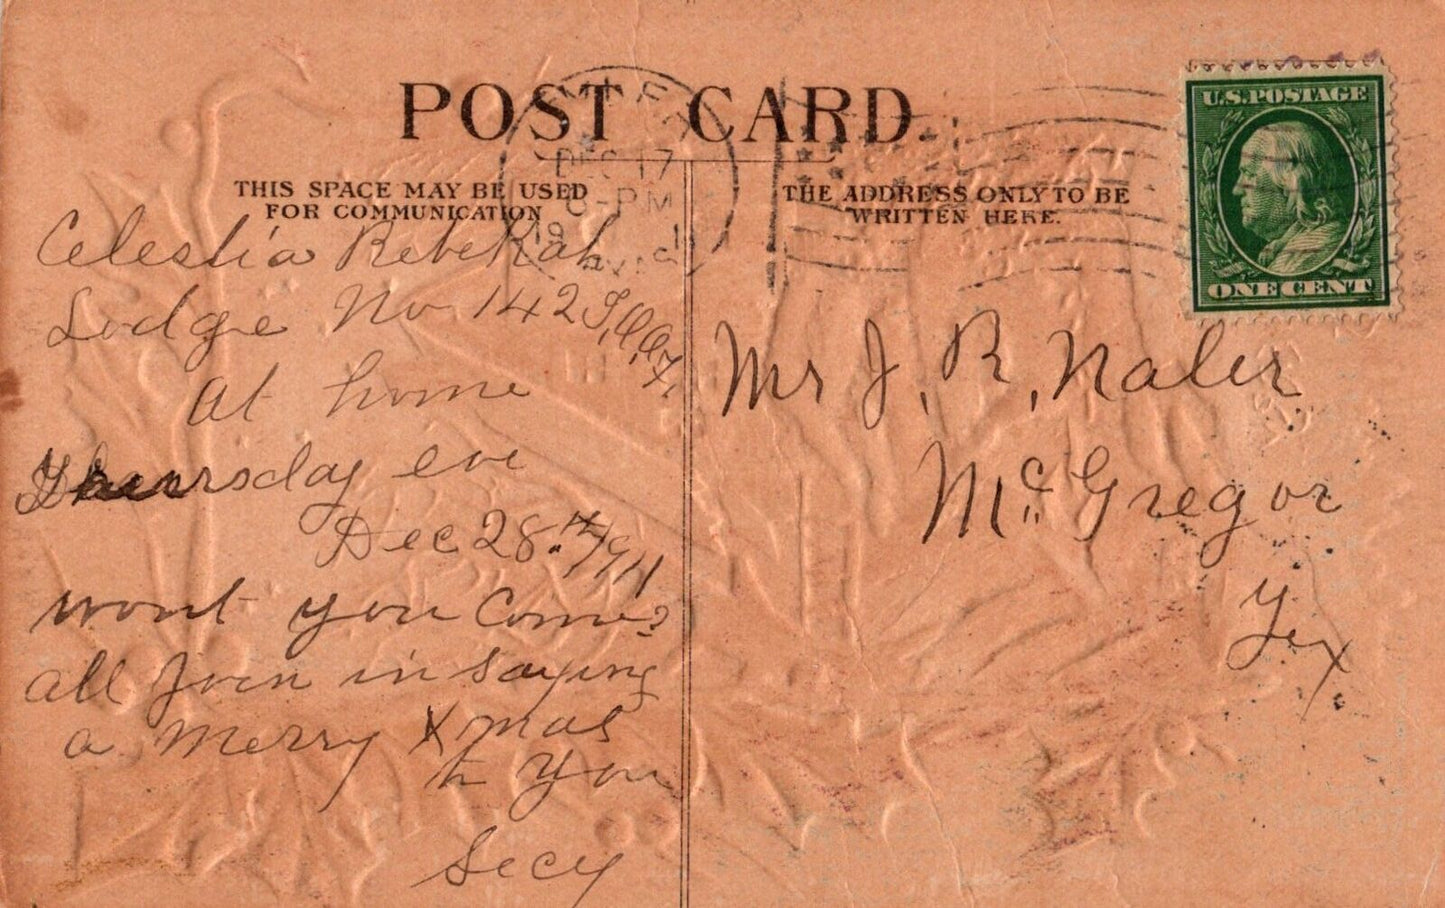 POST CARD.
THIS SPACE MAY BE USED
FOR COMMUNICATION
THE ADDRESS ONLY TO BE
WRITTEN HERE.
DEC 17
-PM
U.S. POSTAGE
ONE CENT
Celestia Rebekah
Lodge No 142 I.O.O.F.
at home
Thursday eve
Dec 28th 1911
wont you Come?
all Join in saying
a merry Xmas
to you
Secy
Mr J. R. Naler
McGregor
Tex